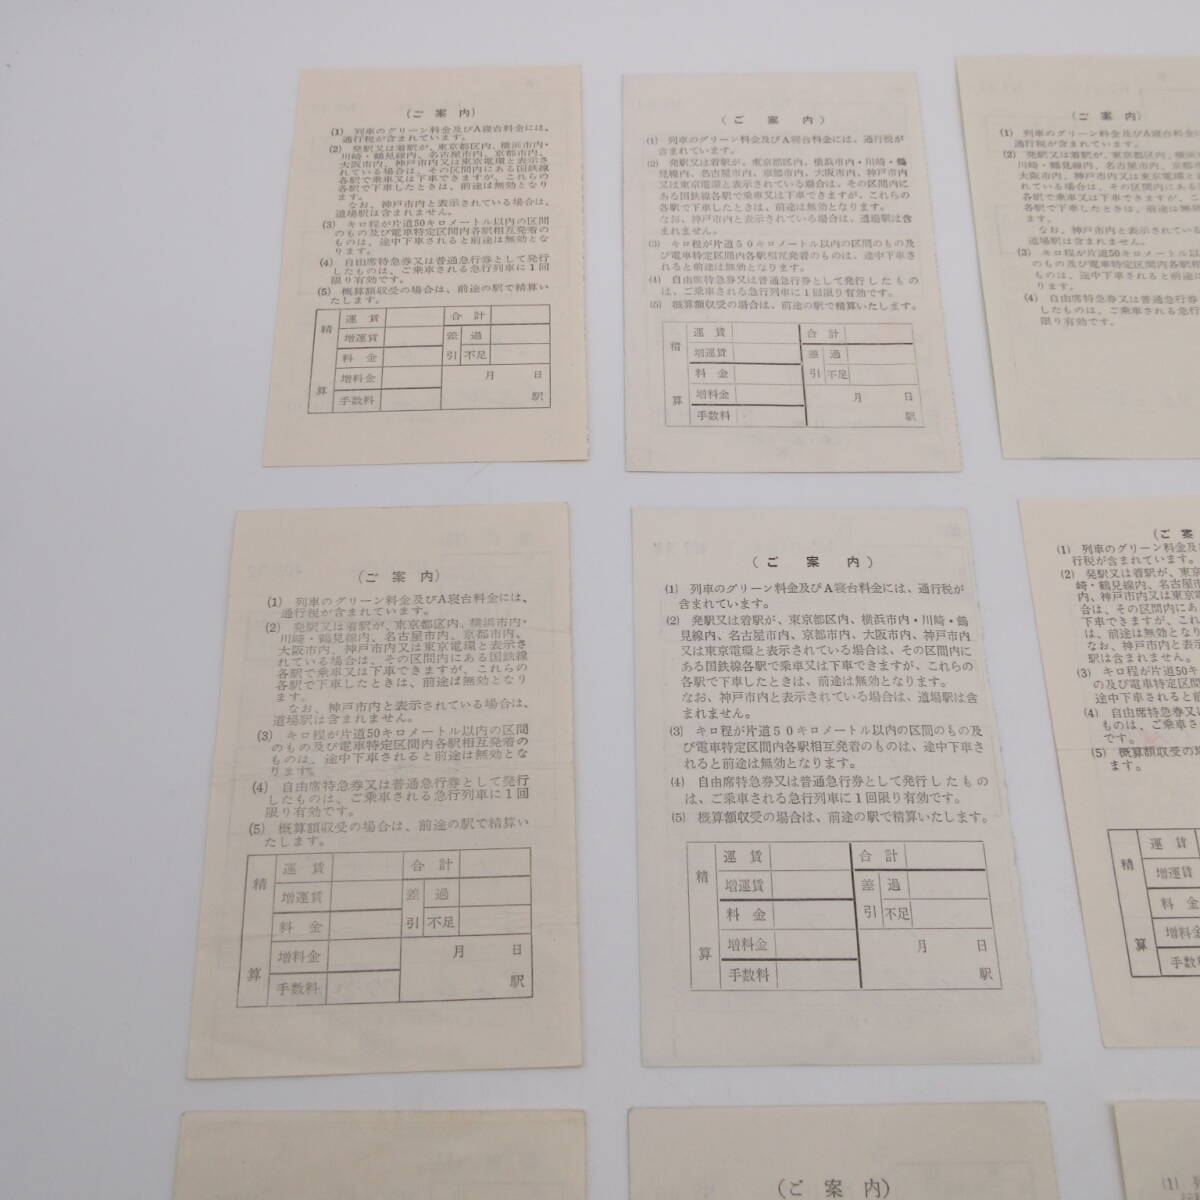 (ご案内)
(1) 列車のグリーン料金及びA寝台料金には、
通行税が含まれています。
(2) 発駅又は着駅が、東京都区内、横浜市内・
川崎・鶴見線内、名古屋市内、京都市内、
大阪市内、神戸市内又は東京電環と表示さ
れている場合は、その区間内にある国鉄線
各駅で乗車又は下車できますが、これらの
各駅で下車したときは、前途は無効となり
ます。
なお、神戸市内と表示されている場合は、
道場駅は含まれません。
(3) キロ程が片道50キロメートル以内の区間
のもの及び電車特定区間内各駅相互発着の
ものは、途中下車されると前途は無効とな
ります。
(4) 自由席特急券又は普通急行券として発行
したものは、ご乗車される急行列車に1回
限り有効です。
(5) 概算額収受の場合は、前途の駅で精算い
たします。
精算
運賃 合計
増運賃 差引 過
料金 不足
増料金 月 日
手数料 駅
(ご案内)
(1) 列車のグリーン料金及びA寝台料金には、通行税が
含まれています。
(2) 発駅又は着駅が、東京都区内、横浜市内・川崎・鶴
見線内、名古屋市内、京都市内、大阪市内、神戸市内
又は東京電環と表示されている場合は、その区間内に
ある国鉄線各駅で乗車又は下車できますが、これらの
各駅で下車したときは、前途は無効となります。
なお、神戸市内と表示されている場合は、道場駅は含
まれません。
(3) キロ程が片道50キロメートル以内の区間のもの及
び電車特定区間内各駅相互発着のものは、途中下車さ
れると前途は無効となります。
(4) 自由席特急券又は普通急行券として発行したもの
は、ご乗車される急行列車に1回限り有効です。
(5) 概算額収受の場合は、前途の駅で精算いたします。
精算
運賃 合計
増運賃 差引 過
料金 不足
増料金 月 日
手数料 駅
(ご案内)
(1) 列車のグリーン料金及びA寝台料金
通行税が含まれています。
(2) 発駅又は着駅が、東京都区内、横浜
川崎・鶴見線内、名古屋市内、京都市
大阪市内、神戸市内又は東京電環と表
れている場合は、その区間内にある国
各駅で乗車又は下車できますが、これ
各駅で下車したときは、前途は無効と
ます。
なお、神戸市内と表示されている
道場駅は含まれません。
(3) キロ程が片道50キロメートル以内
のもの及び電車特定区間内各駅相互
ものは、途中下車されると前途は無
ります。
(4) 自由席特急券又は普通急行券
したものは、ご乗車される急行
限り有効です。
(ご案内)
(1) 列車のグリーン料金及びA寝台料金には、
通行税が含まれています。
(2) 発駅又は着駅が、東京都区内、横浜市内・
川崎・鶴見線内、名古屋市内、京都市内、
大阪市内、神戸市内又は東京電環と表示さ
れている場合は、その区間内にある国鉄線
各駅で乗車又は下車できますが、これらの
各駅で下車したときは、前途は無効となり
ます。
なお、神戸市内と表示されている場合は、
道場駅は含まれません。
(3) キロ程が片道50キロメートル以内の区間
のもの及び電車特定区間内各駅相互発着の
ものは、途中下車されると前途は無効とな
ります。
(4) 自由席特急券又は普通急行券として発行
したものは、ご乗車される急行列車に1回
限り有効です。
(5) 概算額収受の場合は、前途の駅で精算い
たします。
精算
運賃 合計
増運賃 差引 過
料金 不足
増料金 月 日
手数料 駅
(ご案内)
(1) 列車のグリーン料金及びA寝台料金には、通行税が
含まれています。
(2) 発駅又は着駅が、東京都区内、横浜市内・川崎・鶴
見線内、名古屋市内、京都市内、大阪市内、神戸市内
又は東京電環と表示されている場合は、その区間内に
ある国鉄線各駅で乗車又は下車できますが、これらの
各駅で下車したときは、前途は無効となります。
なお、神戸市内と表示されている場合は、道場駅は含
まれません。
(3) キロ程が片道50キロメートル以内の区間のもの及
び電車特定区間内各駅相互発着のものは、途中下車さ
れると前途は無効となります。
(4) 自由席特急券又は普通急行券として発行したもの
は、ご乗車される急行列車に1回限り有効です。
(5) 概算額収受の場合は、前途の駅で精算いたします。
精算
運賃 合計
増運賃 差引 過
料金 不足
増料金 月 日
手数料 駅
(ご案
(1) 列車のグリーン料金及
行税が含まれています。
(2) 発駅又は着駅が、東京
崎・鶴見線内、名古屋市
内、神戸市内又は東京電
合は、その区間内にある
下車できますが、これ
は、前途は無効となり
なお、神戸市内と表示
駅は含まれません。
(3) キロ程が片道50キ
の及び電車特定区間
途中下車されると前
(4) 自由席特急券又
ものは、ご乗車さ
です。
(5) 概算額収受の場
ます。
精算
運賃
増運賃
料金
増料金
手数
(ご案内)
(1)